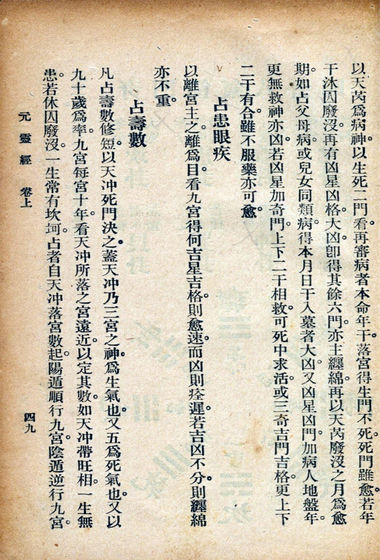 以天芮爲病神以生死二門看再審病者本命年干落宮得生門不死死門雖愈若年
干沐囚廢沒再有凶星凶格大凶卽得其餘六門亦主纏綿再以天芮廢沒之月爲愈
期如占父母病或兒女同類病得本月日干入墓者大凶又凶星凶門加病人地盤年
更無救神亦凶若凶星加奇門上下二干相救可死中求活或三奇吉門吉格更上下
二干有合雖不服藥亦可愈
占患眼疾
以離宮主之離爲目看九宮得何吉星吉格則愈速而凶則痊遲若吉凶不分則纏綿
亦不重
占壽數
凡占壽數修短以天冲死門決之蓋天冲乃三宮之神爲生氣也又五爲死氣也又以
九十歲爲率九宮每宮十年看天冲所落之宮遠近以定其數如天冲帶旺相一生無
患若休囚廢沒一生常有坎坷占者自天冲落宮數起陽遁順行九宮陰遁逆行九宮
元靈經 卷上
四九